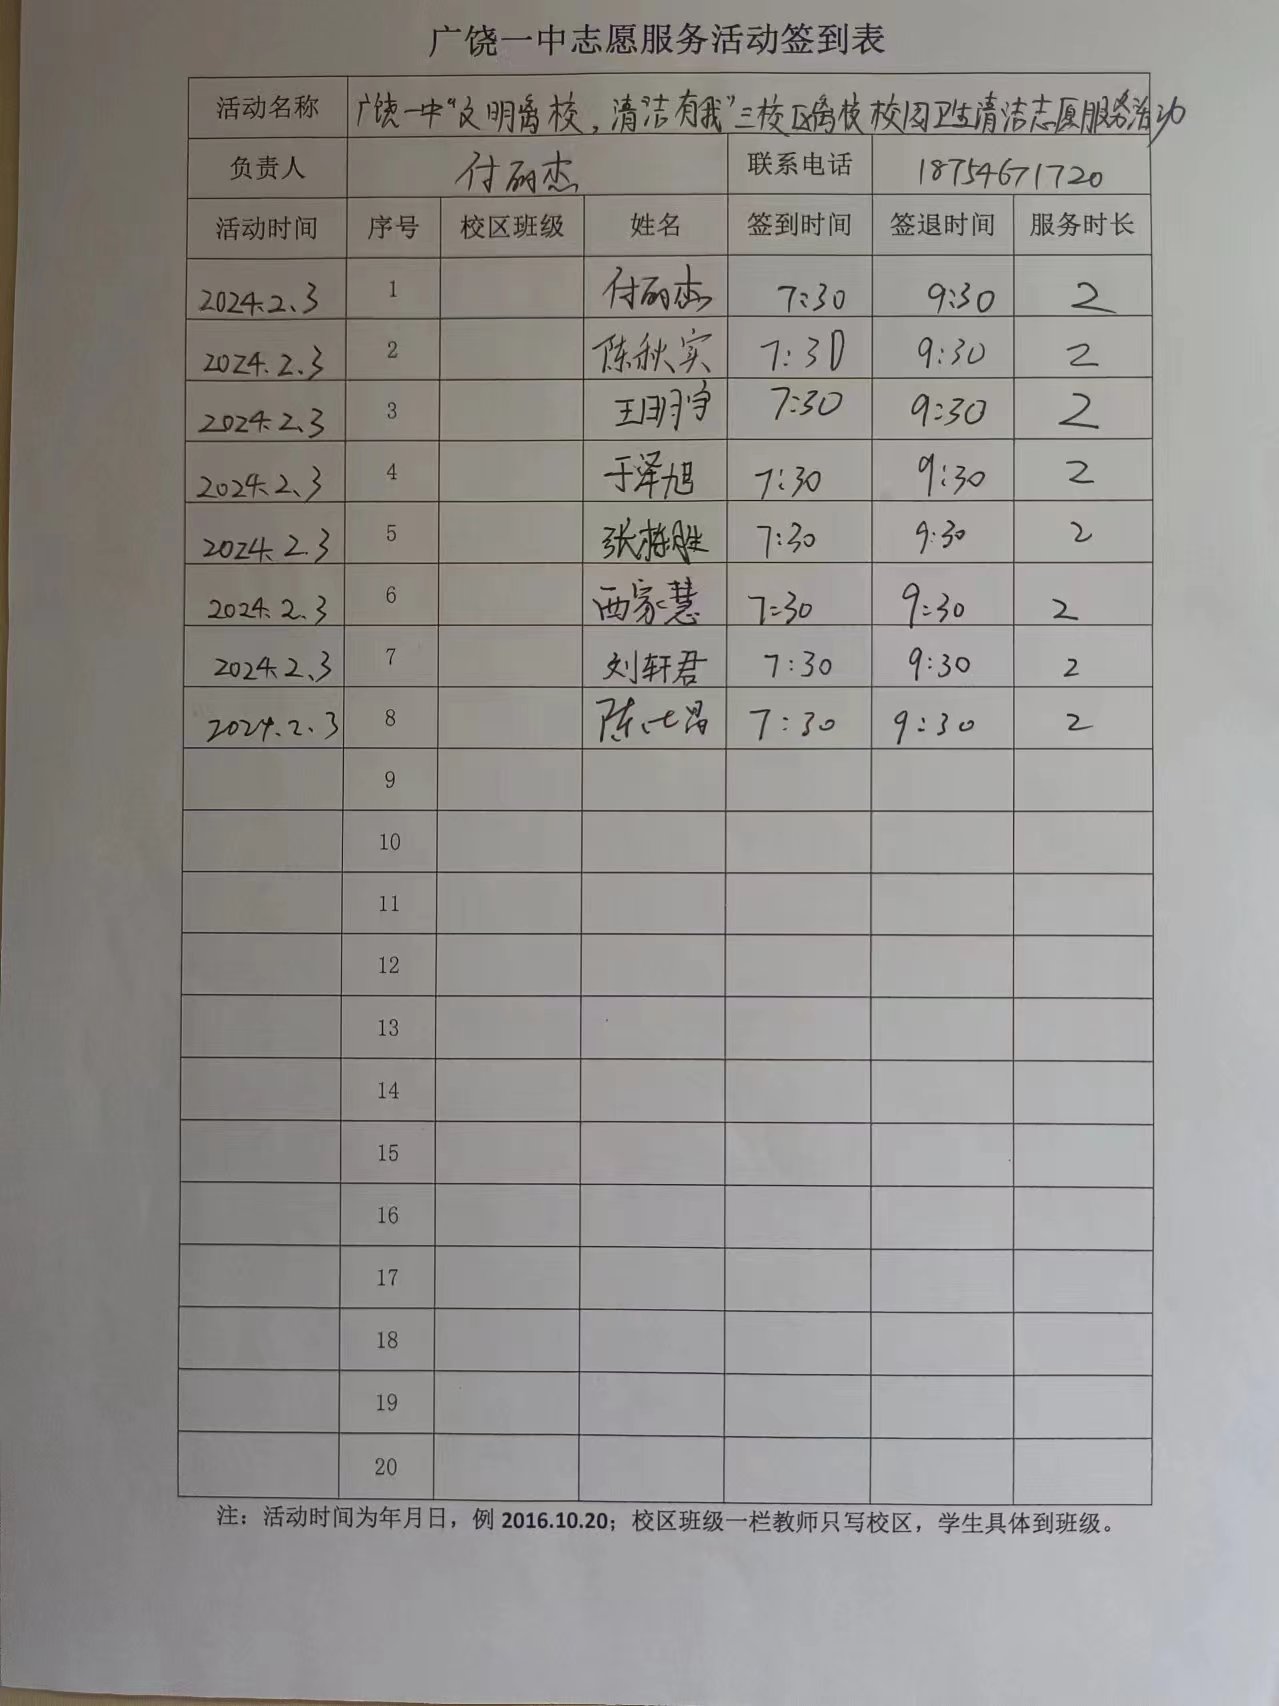 广饶一中志愿服务活动签到表
活动名称 广饶一中“文明离校，清洁有我”三校区离校校园卫生清洁志愿服务活动
负责人 付丽杰 联系电话 18754671720
活动时间 序号 校区班级 姓名 签到时间 签退时间 服务时长
2024.2.3 1 付丽杰 7:30 9:30 2
2024.2.3 2 陈秋实 7:30 9:30 2
2024.2.3 3 王明宇 7:30 9:30 2
2024.2.3 4 于泽旭 7:30 9:30 2
2024.2.3 5 张栋胜 7:30 9:30 2
2024.2.3 6 西家慧 7:30 9:30 2
2024.2.3 7 刘轩君 7:30 9:30 2
2024.2.3 8 陈 7:30 9:30 2
9
10
11
12
13
14
15
16
17
18
19
20
注：活动时间为年月日，例 2016.10.20；校区班级一栏教师只写校区，学生具体到班级。